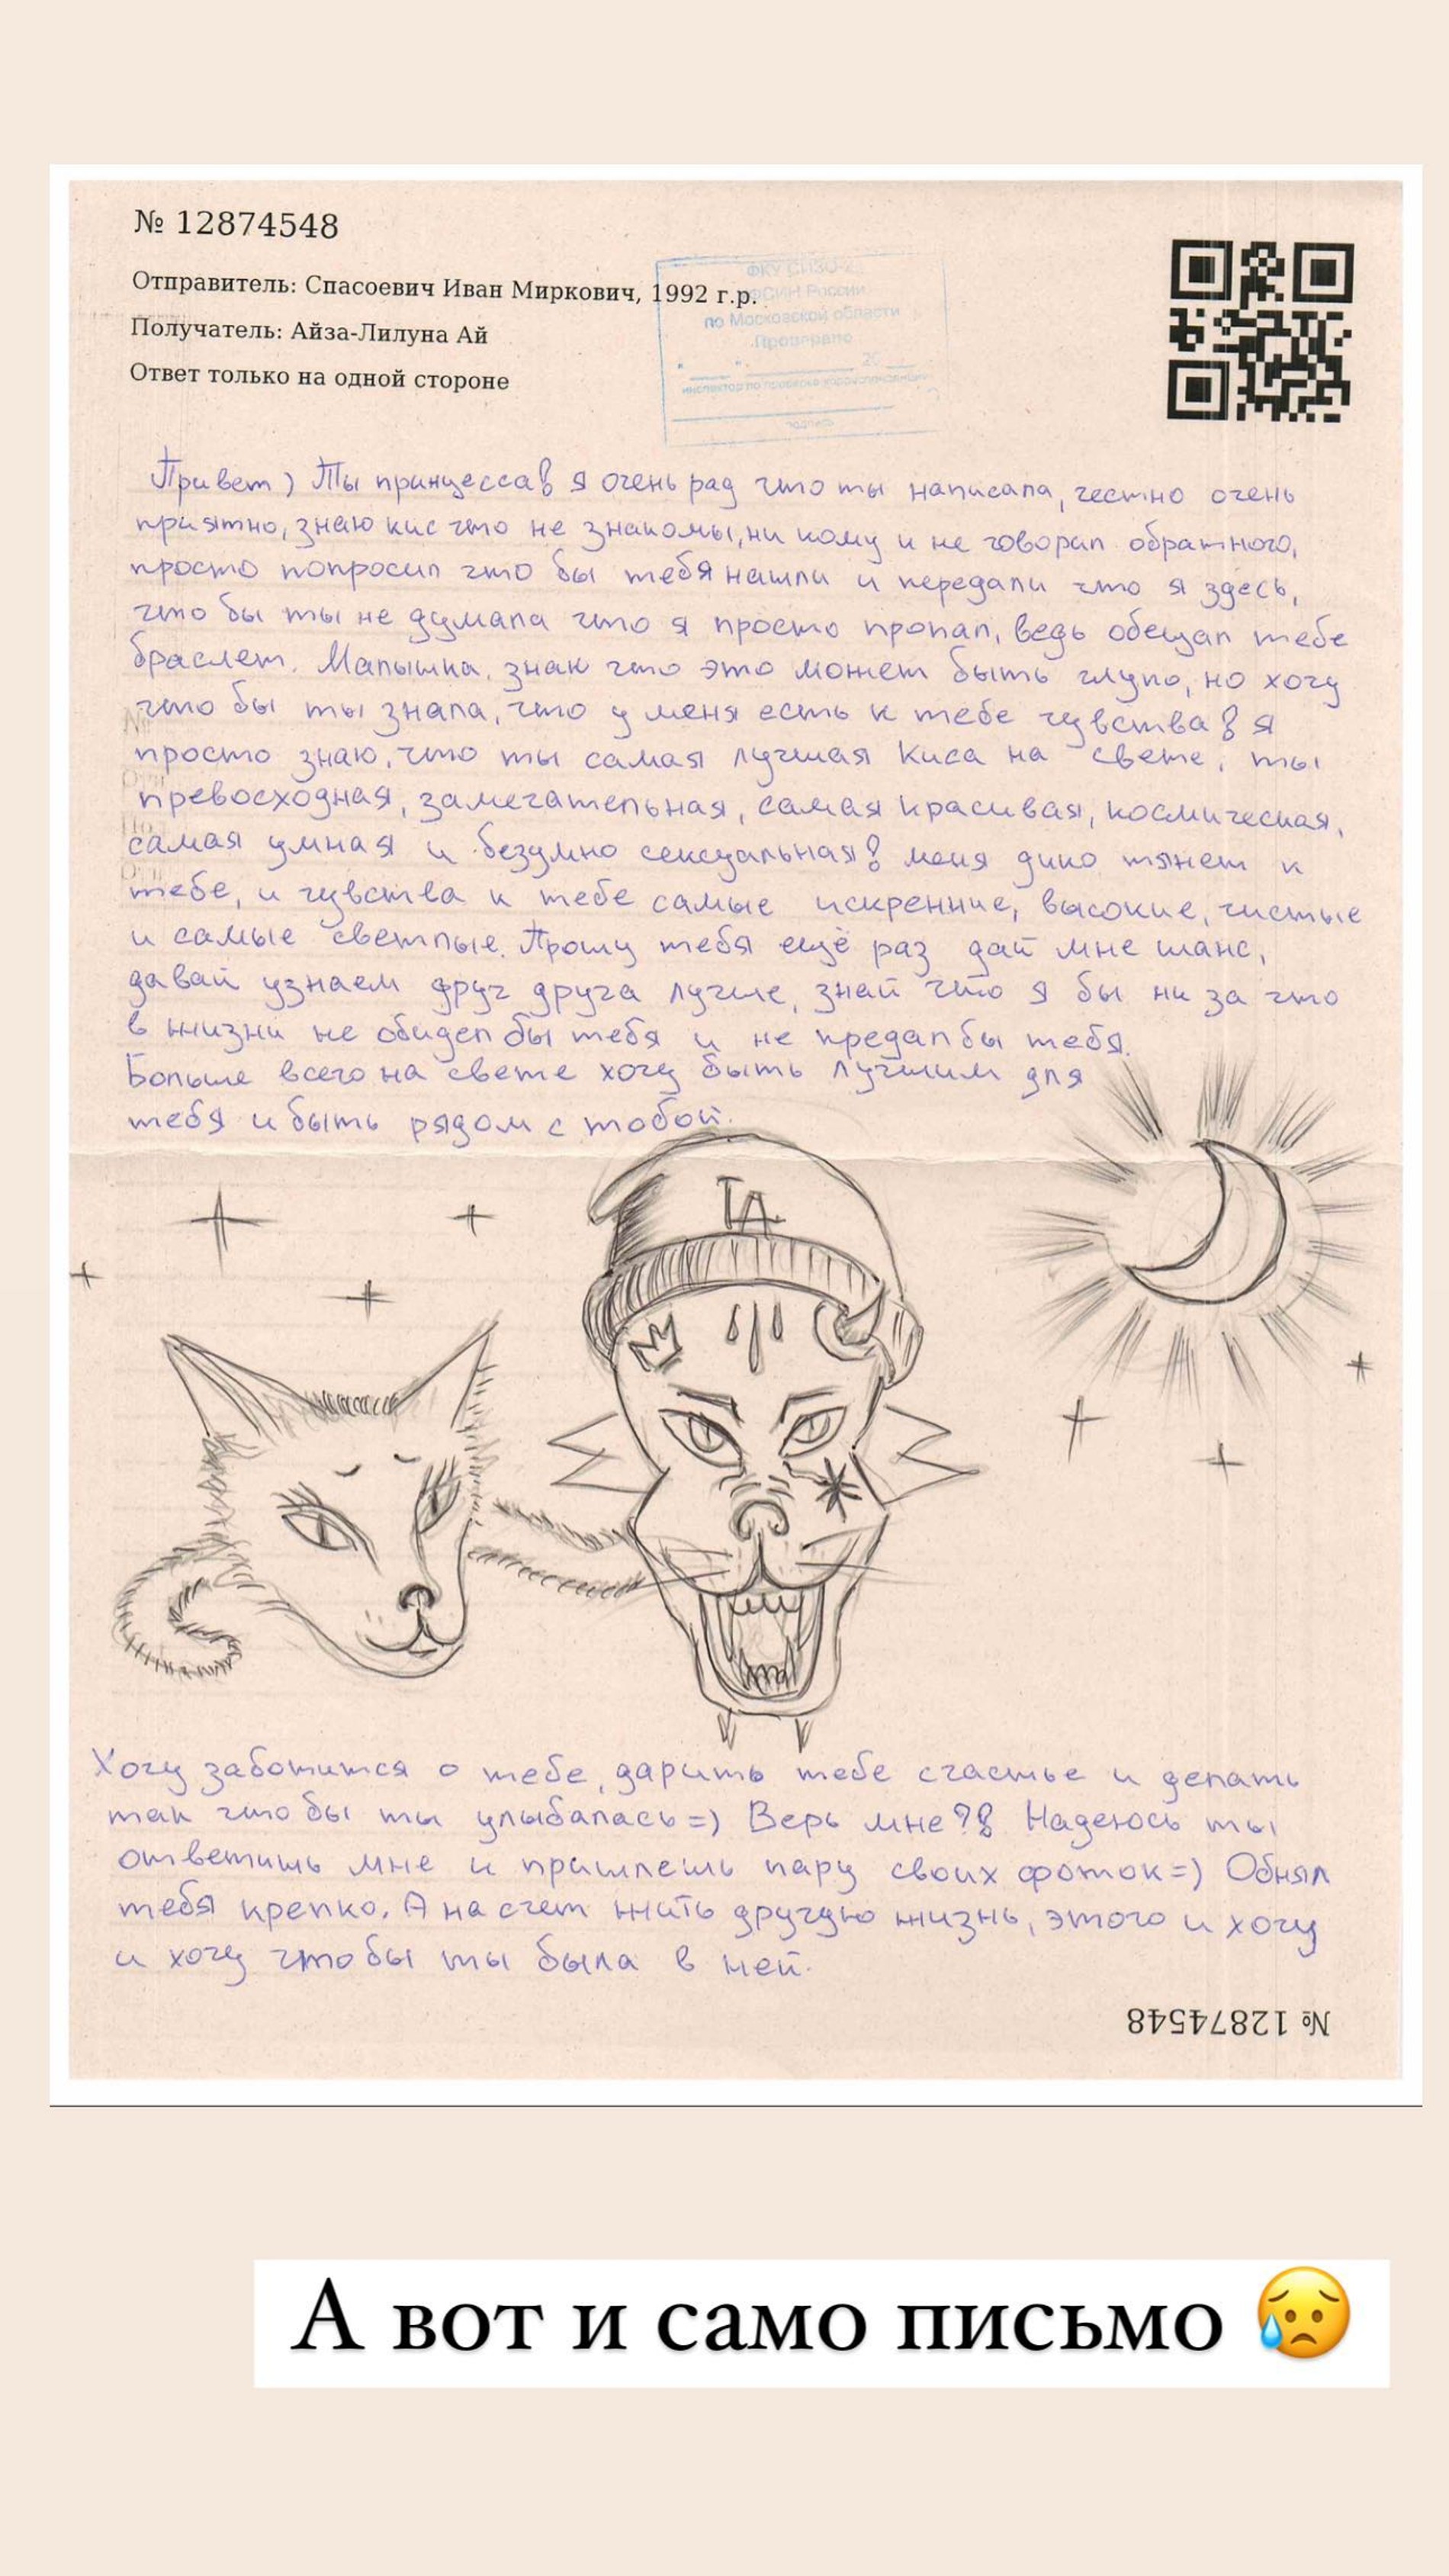 № 12874548
Отправитель: Спасоевич Иван Миркович, 1992 г.р.
Получатель: Айза-Лилуна Ай
Ответ только на одной стороне
ФКУ СИЗО-2
ФСИН России
по Московской области
Проверено
20
инспектор по проверке корреспонденции
подпись
Привет) Ты принцесса! я очень рад что ты написала, честно очень
приятно, знаю кис что не знакомы, ни кому и не говорил обратного,
просто попросил что бы тебя нашли и передали что я здесь,
что бы ты не думала что я просто пропал, ведь обещал тебе
браслет. Малышка, знаю что это может быть глупо, но хочу
что бы ты знала, что у меня есть к тебе чувства! Я
просто знаю, что ты самая лучшая киса на свете, ты
превосходная, замечательная, самая красивая, космическая,
самая умная и безумно сексуальная! меня дико тянет к
тебе, и чувства к тебе самые искренние, высокие, чистые
и самые светлые. Прошу тебя ещё раз дай мне шанс,
давай узнаем друг друга лучше, знай что я бы ни за что
в жизни не обидел бы тебя и не предал бы тебя.
Больше всего на свете хочу быть лучшим для
тебя и быть рядом с тобой.
LA
Хочу заботится о тебе, дарить тебе счастье и делать
так что бы ты улыбалась=) Верь мне?! Надеюсь ты
ответишь мне и пришлешь пару своих фоток=) Обнял
тебя крепко. А на счет жить другую жизнь, этого и хочу
и хочу что бы ты была в ней.
№ 12874548
А вот и само письмо 😥